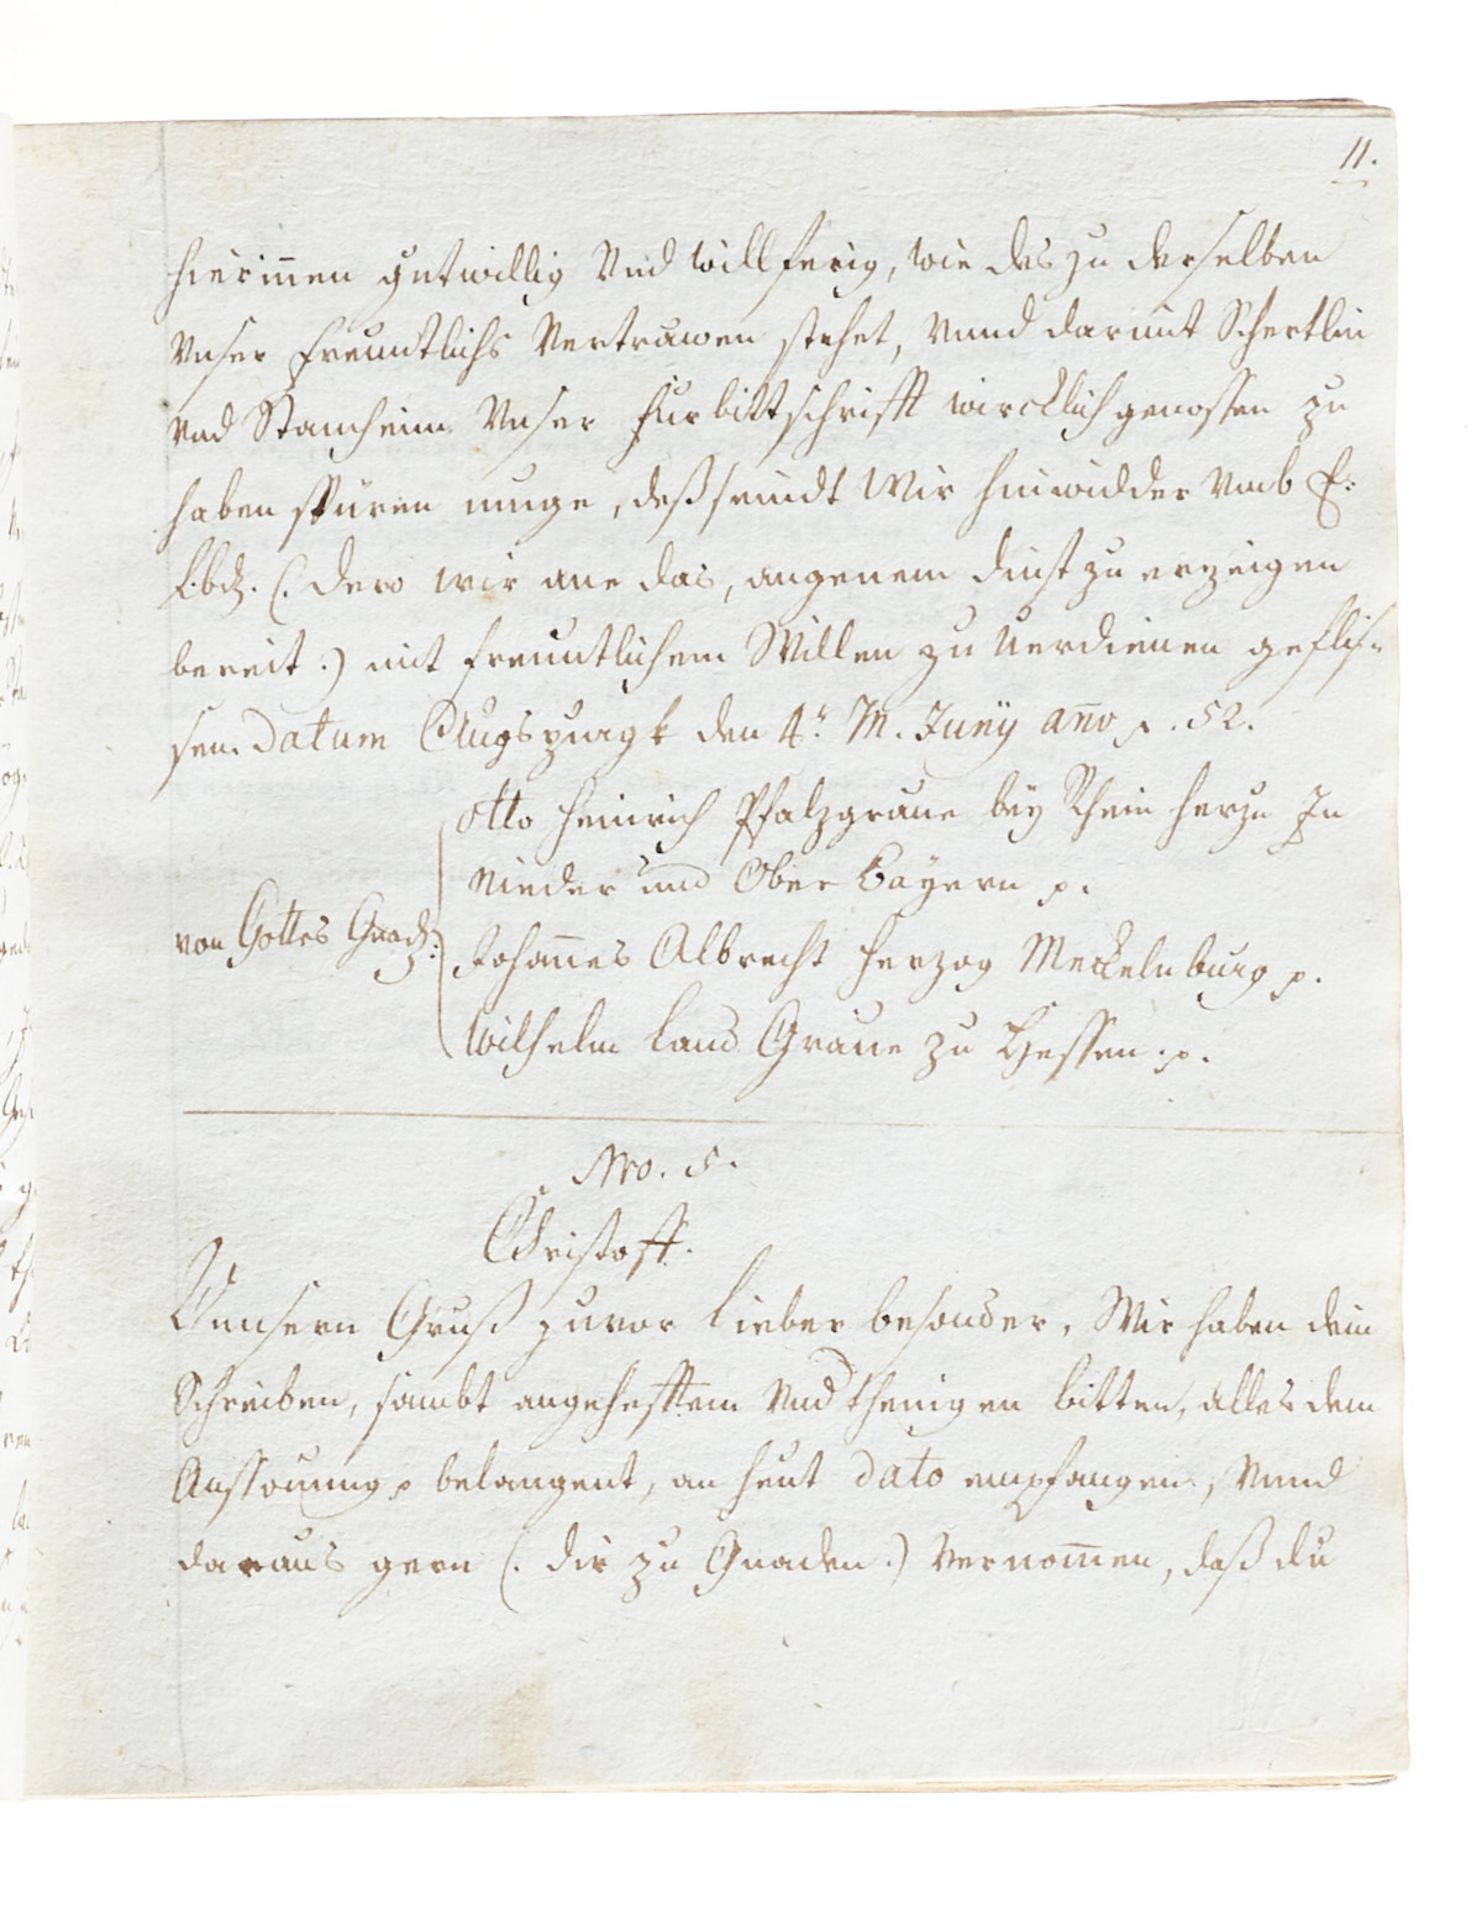 11.
hierinnen gutwillig Vnd willferig, wie des zu derselben
Vnser freundtlichs Vertrawen stehet, Vnnd darmit Schertlin
Vnd Stamheim Vnser furbittschrifft wircklich genossen zu
haben spüren muge, deß seindt Wir hinwidder Vmb E:
Lbd. (. dero wir ane das, angenem dinst zu erzeigen
bereit :) mit freuntlichem Willen zu Verdienen geflis-
sen. Datum Augspurgk den 4. M. Junÿ año p. 52.
Otto Heinrich Pfalzgraue beÿ Rhein herzu In
Nieder und Ober Bayern p.
von Gottes Gnad:
Johañes Albrecht Herzog Meckelnburg p.
Wilhelm Land Graue zu Hessen .p.
Nro. 5.
Christoff.
Vnnsern Gruß zuvor lieber besonder, Wir haben dein
Schreiben, sambt angehefftem Vndthenigen bitten, alles dein
Aussönung p belangent, an heut dato empfangen, Vnnd
daraus gern (. dir zu Gnaden .) Vernom̄en, daß du